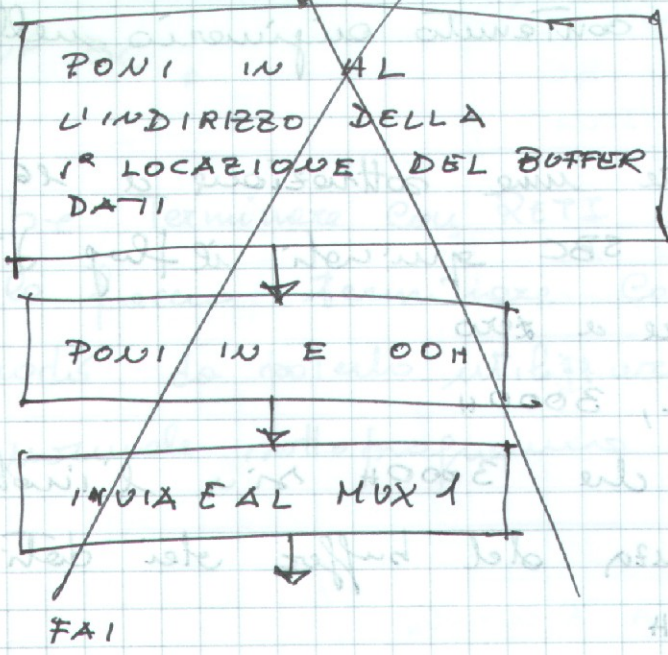 PONI IN AL
L'INDIRIZZO DELLA
1ª LOCAZIONE DEL BUFFER
DATI
PONI IN E OOH
INVIA E AL MUX 1
FAI